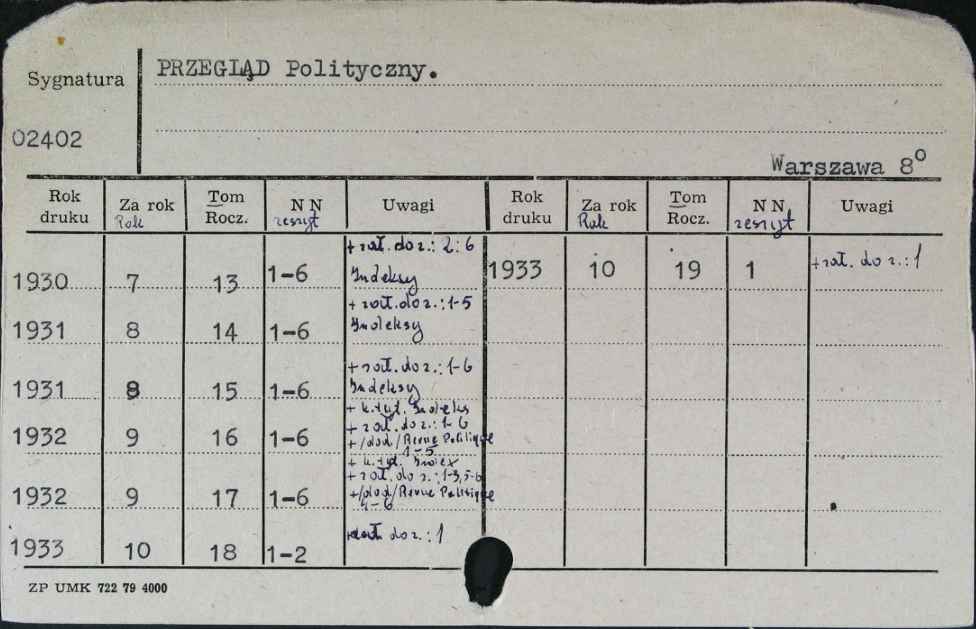 Sygnatura
PRZEGLĄD Polityczny.
02402
Warszawa 8°
Rok druku Za rok Rok Tom Rocz. N N zeszyt Uwagi Rok druku Za rok Rok Tom Rocz. N N zeszyt Uwagi
1930 7 13 1-6 + zał. do z.: 2; 6 Indeksy 1933 10 19 1 + zał. do z.: 1
1931 8 14 1-6 + zał. do z.: 1-5 Indeksy
1931 8 15 1-6 + zał. do z.: 1-6 Indeksy
1932 9 16 1-6 + k. tyt. Indeks + zał. do z.: 1-6 + /dod/ Revue Politique 1-5
1932 9 17 1-6 + k. tyt. Index + zał. do z.: 1-3, 5-6 + /dod/ Revue Politique 4-6
1933 10 18 1-2 + zał. do z.: 1
ZP UMK 722 79 4000